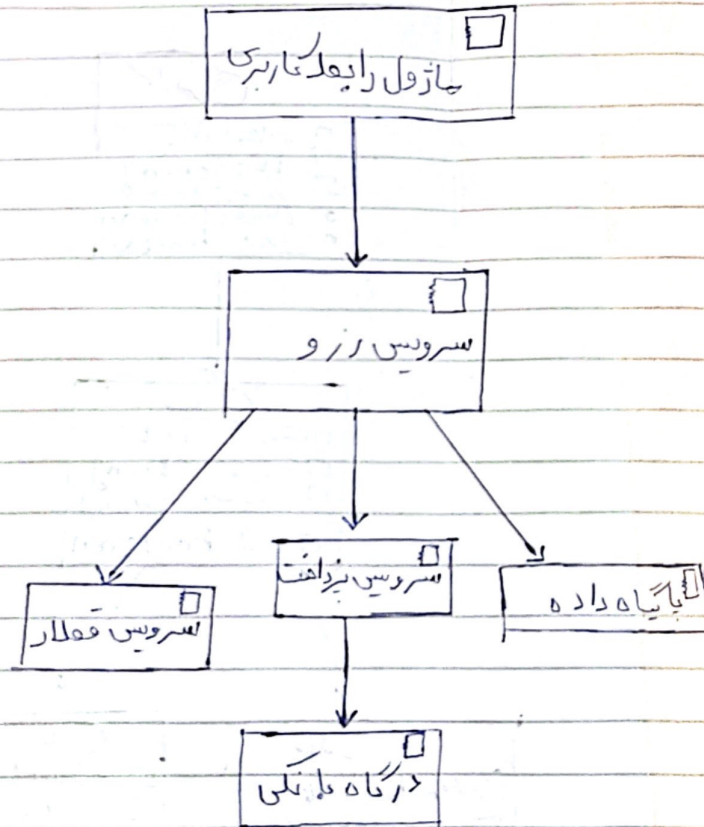 ماژول رابط کاربری
سرویس رزرو
سرویس قطار
سرویس پرداخت
پایگاه داده
درگاه بانکی